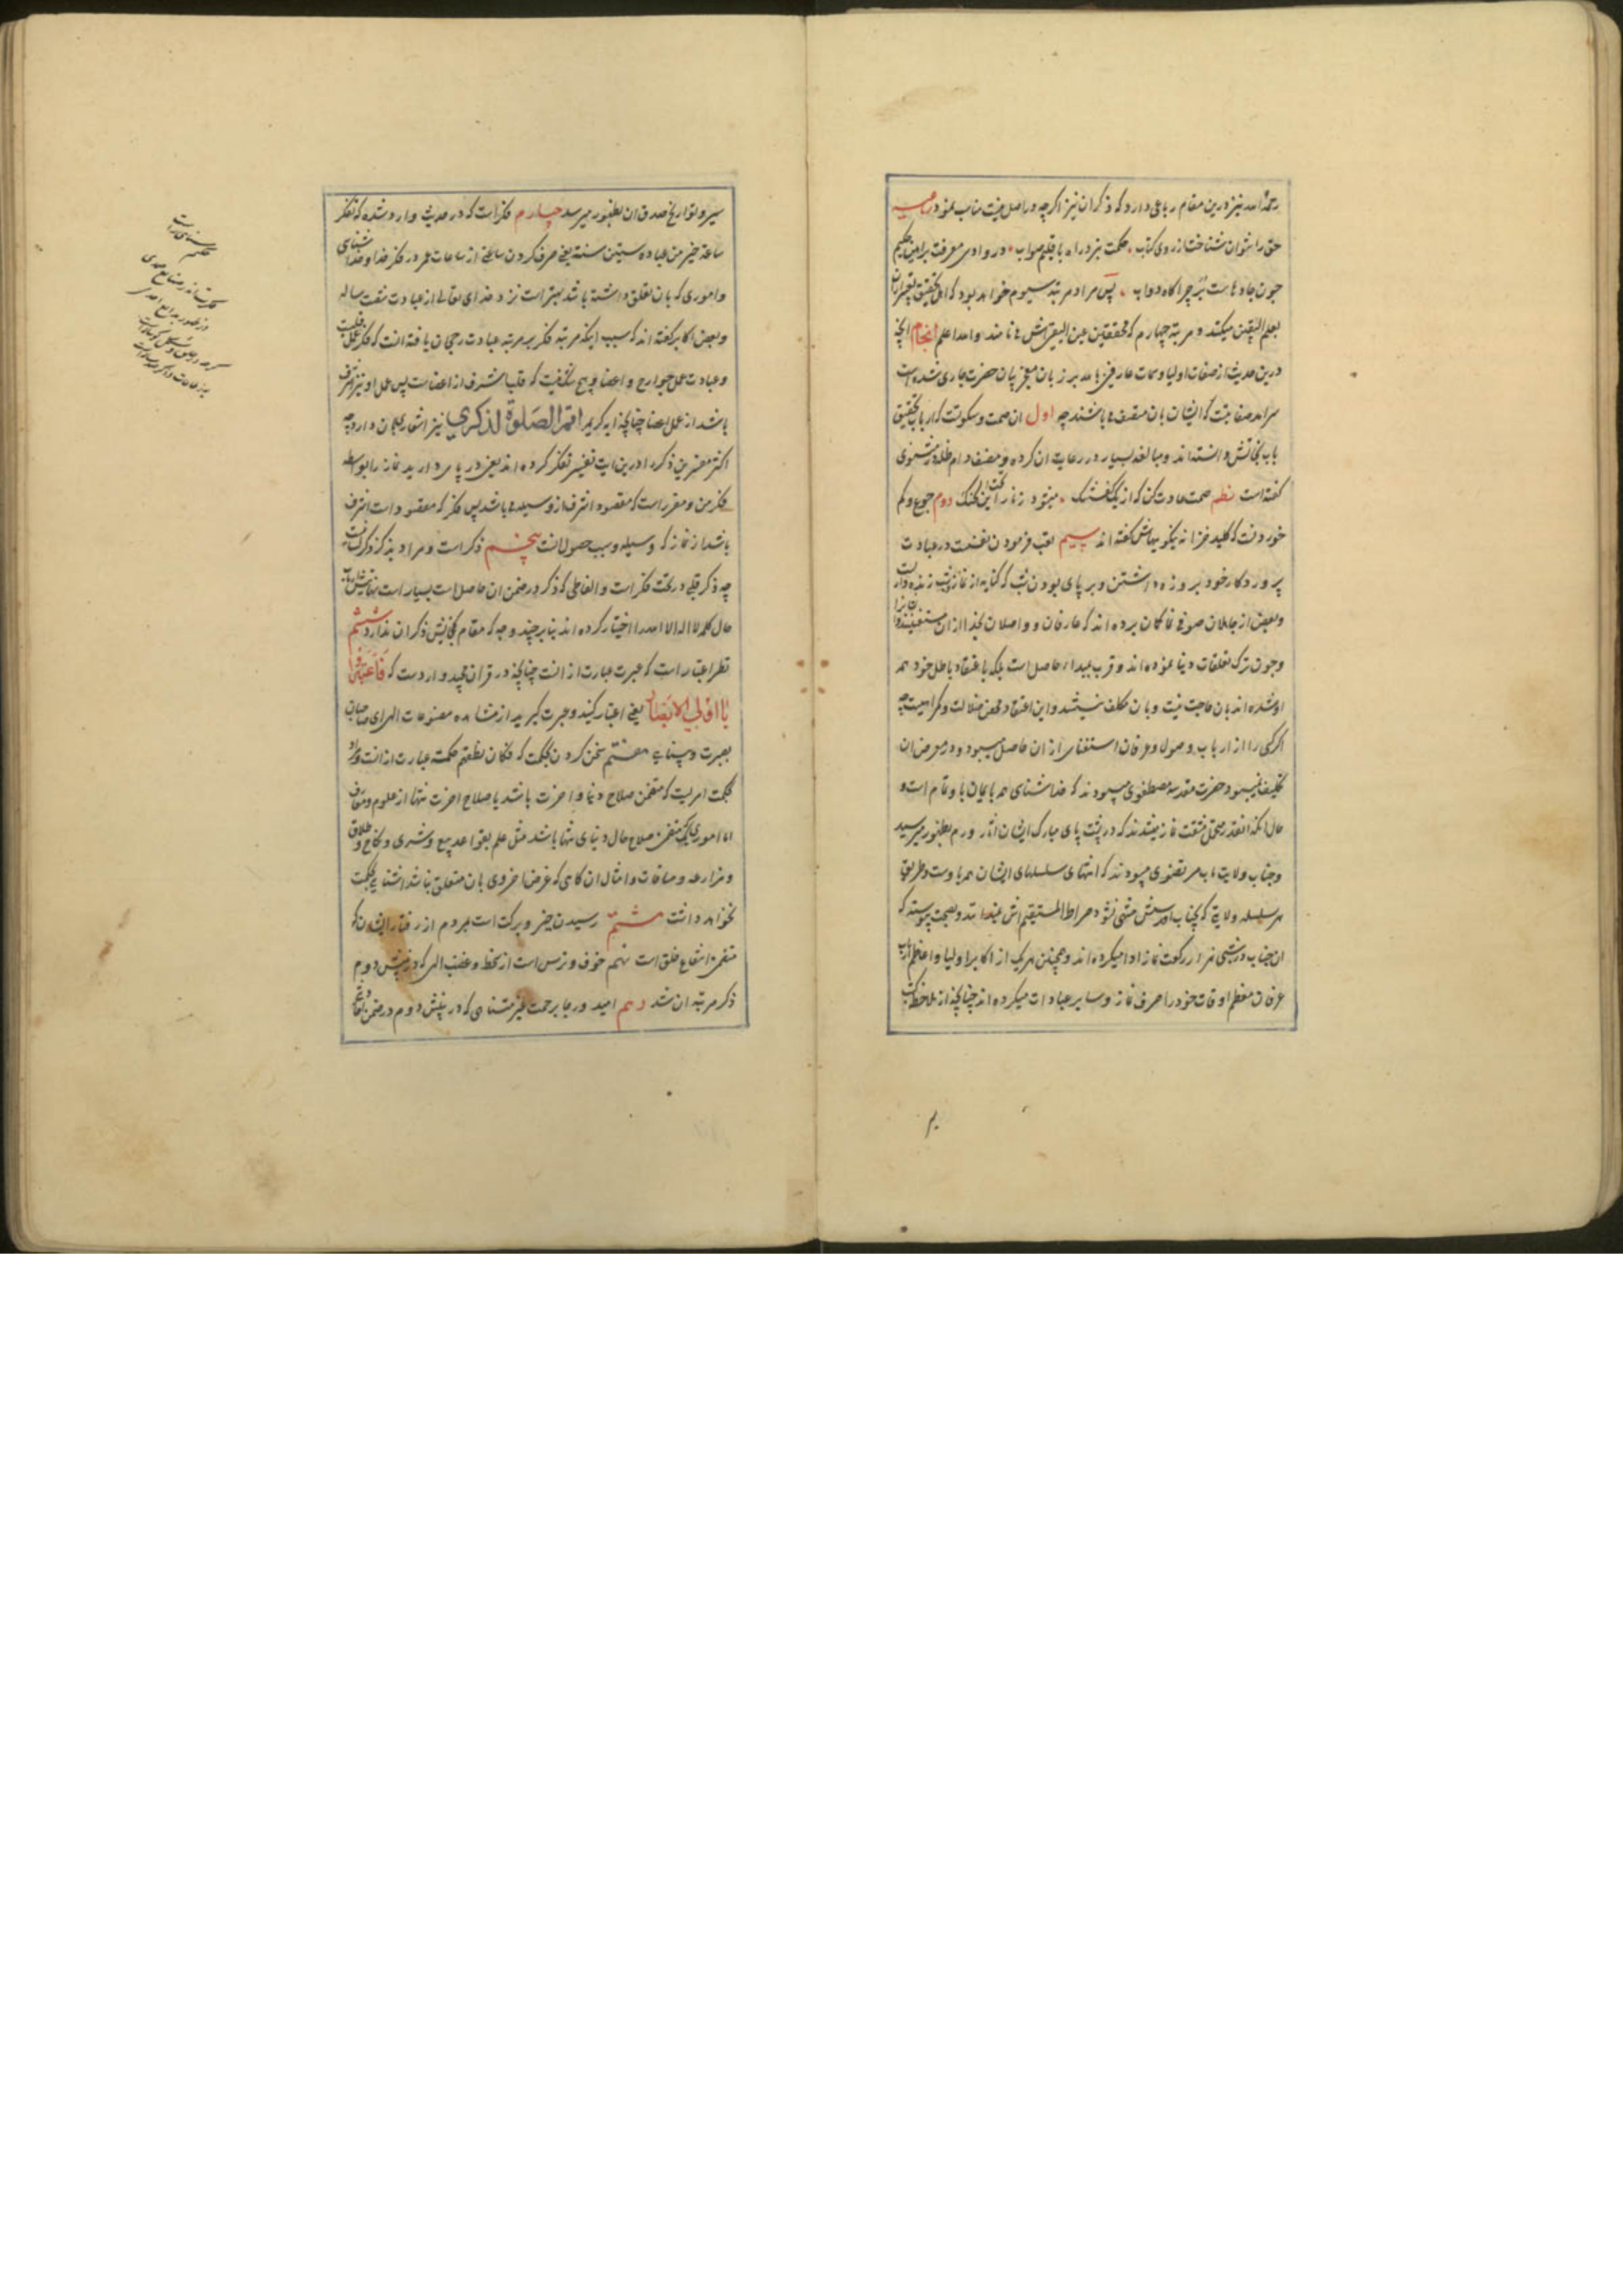 رحمة الله نیز درین مقام رباعی دارد که ذکر ان نیز اگرچه در اصل نیست مناسب نمود رباعیه
حق را نتوان شناخت از روی کتاب حکمت نبرد راه باقلیم صواب در وادی معرفت براهین حکیم
چون جادهاست در چراگاه دواب پس مراد مرتبه سیوم خواهد بود که اهل تحقیق تعبیر ازان
بعلم الیقین میکنند و مرتبه چهارم که محققین عین الیقینش نامند و الله اعلم انجام انچه
درین حدیث از صفات اولیا و سمات عارفین بالله بر زبان معجز بیان حضرت جاری شده است
سرامد صفاتیست که ایشان بان متصف میباشند چه اول ان صمت و سکوتست که ارباب تحقیق
باب نجاتش دانسته‌اند و مبالغه بسیار در رعایت ان کرده و مصنف دام ظله در مثنوی
گفته است نظم صمت عادت کن که از یک گفتنک میشود زنار این تحت الحنک دوم جوع و کم
خوردنست که کلید خزانه نیکو بهایش گفته اند سیم تعب فرمودن نفسست در عبادت
پروردگار خود بروزه داشتن و بر پای بودن شب که کنایه از نماز شب زنده داریست
و بعضی از جاهلان صوفی نما گمان برده‌اند که عارفان و واصلان بخدا ازان مستغنیند زیرا
و چون ترک تعلقات دنیا نموده‌اند و قرب بمبداء حاصل است بلکه باعتقاد باطل خود همه
او شده‌اند بان حاجت نیست و بان مکلف نیستند و این اعتقاد محض ضلالت و گمراهیست چه
اگر کسی را از ارباب وصول و عرفان استغنا از ان حاصل میبود و در معرض ان
تکلیف نمیبود حضرت مقدسه مصطفوی میبودند که خداشناسی همه با یمان باو تمام است و
حال انکه انقدر متحمل مشقت نماز میشدند که در پشت پای مبارک ایشان اثار ورم بظهور میرسید
و جناب ولایت ماب مرتضوی میبودند که انتهای سلسلهای ایشان همه باوست و طریق
هر سلسله ولایتی که بجناب اقدسش منتهی نشود صراط المستقیم اش نمیدانند و بصحت پیوسته که
ان جناب در شبی هزار رکعت نماز ادا میکرده‌اند و همچنین هر یک از اکابر اولیا و اعاظم ارباب
عرفان معظم اوقات خود را صرف نماز و سایر عبادات میکرده‌اند چنانچه از ملاحظه کتب
سیر و تواریخ صدق ان بظهور میرسد چهارم فکر است که در حدیث وارد شده که تفکر
ساعة خیر من عبادة ستین سنة یعنی صرف کردن ساعتی از ساعات عمر در فکر خدا و خداشناسی
و اموری که بان تعلق داشته باشد بهتر است نزد خدای تعالی از عبادت شصت ساله
و بعضی اکابر گفته‌اند که سبب اینکه مرتبه فکر بر مرتبه عبادت رجحان یافته انست که فکر عمل قلبست
و عبادت عمل جوارح و اعضا و هیچ شک نیست که قلب اشرف از اعضاست پس عمل او نیز اشرف
باشد از عمل اعضا چنانچه ایه کریمه اقم الصلوة لذکری نیز اشعاری بان دارد چه
اکثر مفسرین ذکر را درین ایت تفسیر بفکر کرده‌اند یعنی بر پای دارید نماز را بواسطه
فکر من و مقرر است که مقصود اشرف از وسیله میباشد پس فکر که مقصود است اشرف
باشد از نماز که وسیله و سبب حصول انست پنجم ذکر است و مراد بذکر ذکر لسانیست
چه ذکر قلبی در تحت فکر است و الفاظی که ذکر در ضمن ان حاصل است بسیار است
حال کلمه لا اله الا الله را اختیار کرده‌اند بنابر چند وجه که مقام گنجایش ذکر ان ندارد ششم
نظر اعتبار است که عبرت عبارت از انست چنانچه در قران مجید وارد است که فاعتبروا
یا اولی الابصار یعنی اعتبار گیرید و عبرت گیرید از مشاهده مصنوعات الهی ای صاحبان
بصیرت و بینایی هفتم سخن کردن بحکمت که فکان نطقهم حکمة عبارت از انست و مراد
بحکمت امریست که متضمن صلاح دنیا و اخرت باشد یا صلاح اخرت تنها از علوم و معارف
اما اموری که متضمن صلاح حال دنیای تنها باشد مثل علم بقواعد بیع و شری و نکاح و طلاق
و مزارعه و مساقات و امثال ان گاهی که غرض اخروی بان متعلق نباشد اشنایی بحکمت
نخواهد داشت هشتم رسیدن خیر و برکت است بمردم از رفتار ایشان که
متضمن انتفاع خلق است نهم خوف و ترس است از سخط و غضب الهی که در بینش دوم
ذکر مرتبه ان شد دهم امید و رجا برحمت غیر متناهی که در بینش دوم در ضمن